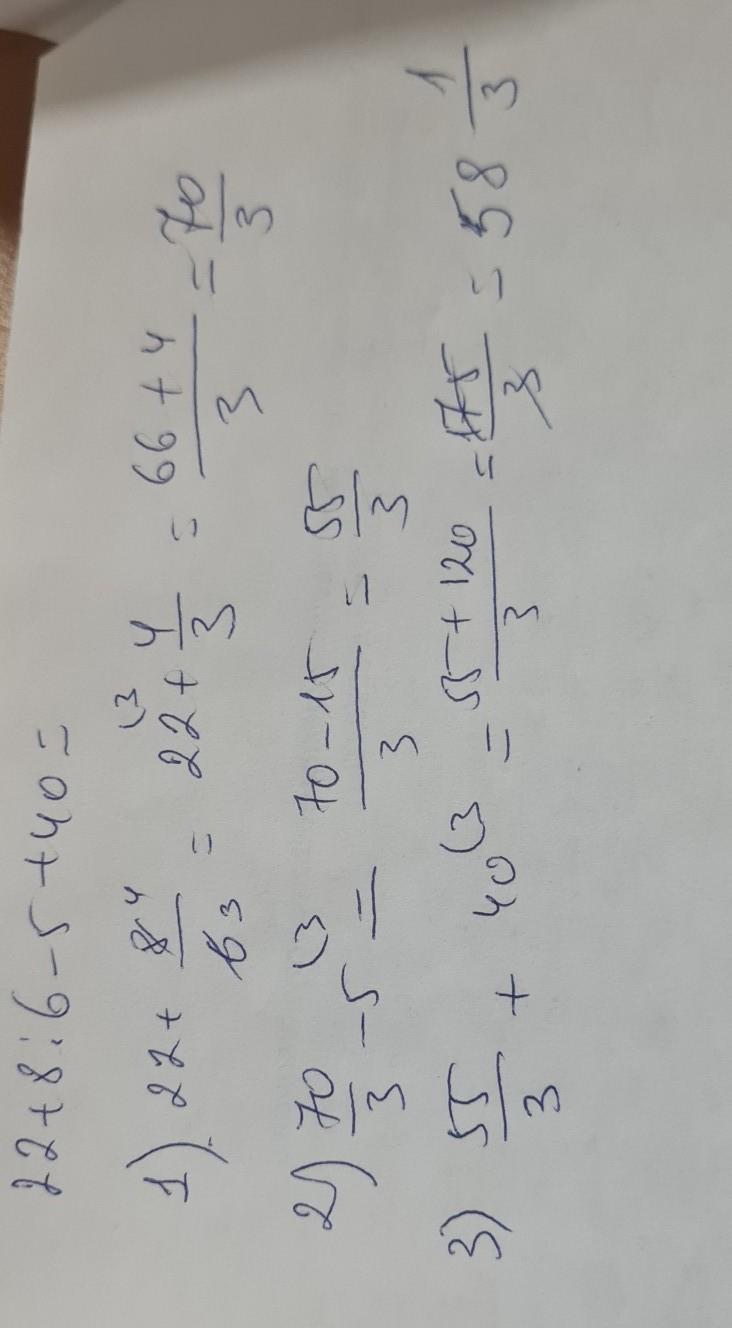 22+8:6-5+40=
1) 22+8⁴/6³ = 22⁽³+4/3 = 66+4/3 = 70/3
2) 70/3-5⁽³ = 70-15/3 = 55/3
3) 55/3 + 40⁽³ = 55+120/3 = 175/3 = 58 1/3